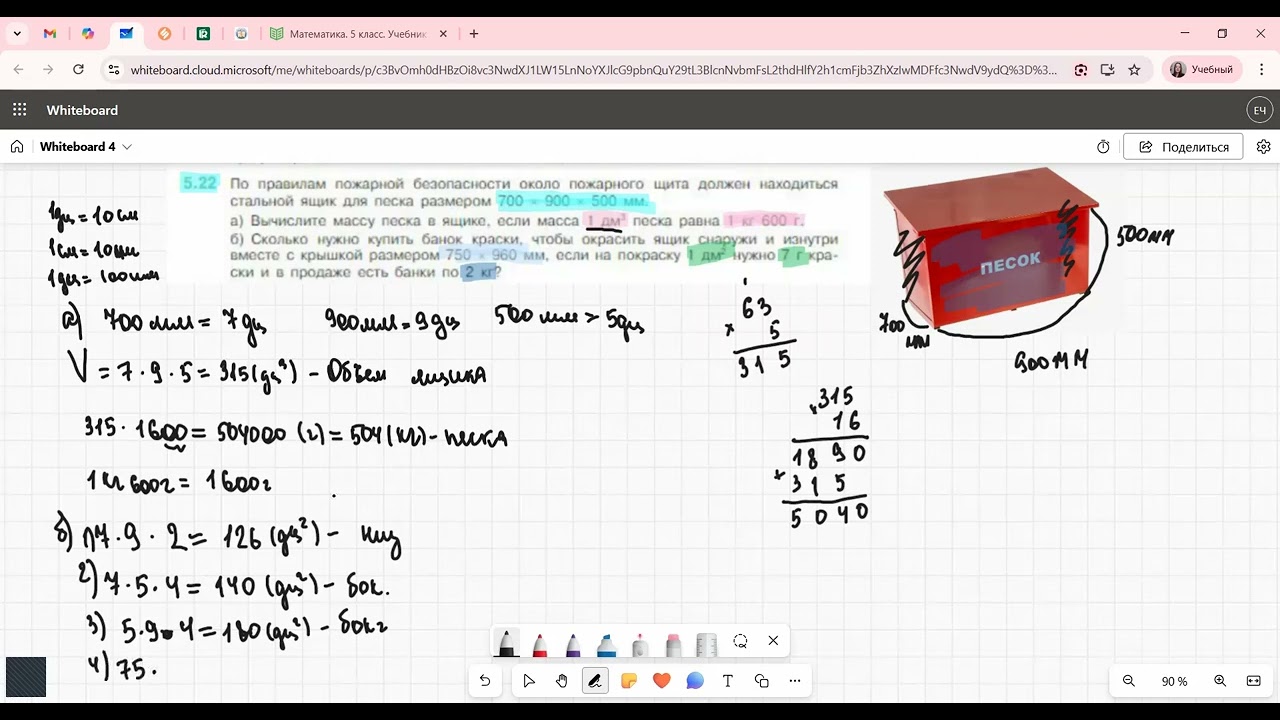 Математика. 5 класс. Учебник
whiteboard.cloud.microsoft/me/whiteboards/p/
Учебный
Whiteboard
ЕЧ
Whiteboard 4
Поделиться
5.22 По правилам пожарной безопасности около пожарного щита должен находиться
стальной ящик для песка размером 700 × 900 × 500 мм.
а) Вычислите массу песка в ящике, если масса 1 дм³ песка равна 1 кг 600 г.
б) Сколько нужно купить банок краски, чтобы окрасить ящик снаружи и изнутри
вместе с крышкой размером 750 × 960 мм, если на покраску 1 дм² нужно 7 г кра-
ски и в продаже есть банки по 2 кг?
1дм = 10см
1см = 10мм
1дм = 100мм
ПЕСОК
500мм
700
мм
900мм
а) 700мм = 7дм 900мм = 9дм 500мм = 5дм
V = 7 · 9 · 5 = 315(дм³) - Объем ящика
315 · 1600 = 504000 (г) = 504(кг) - песка
1кг 600г = 1600г
63
× 5
315
× 315
16
1890
+ 315
5040
б) 1) 7 · 9 · 2 = 126(дм²) - низ
2) 7 · 5 · 4 = 140 (дм²) - бок.
3) 5 · 9 · 4 = 180(дм²) - бок2
4) 75 ·
90 %